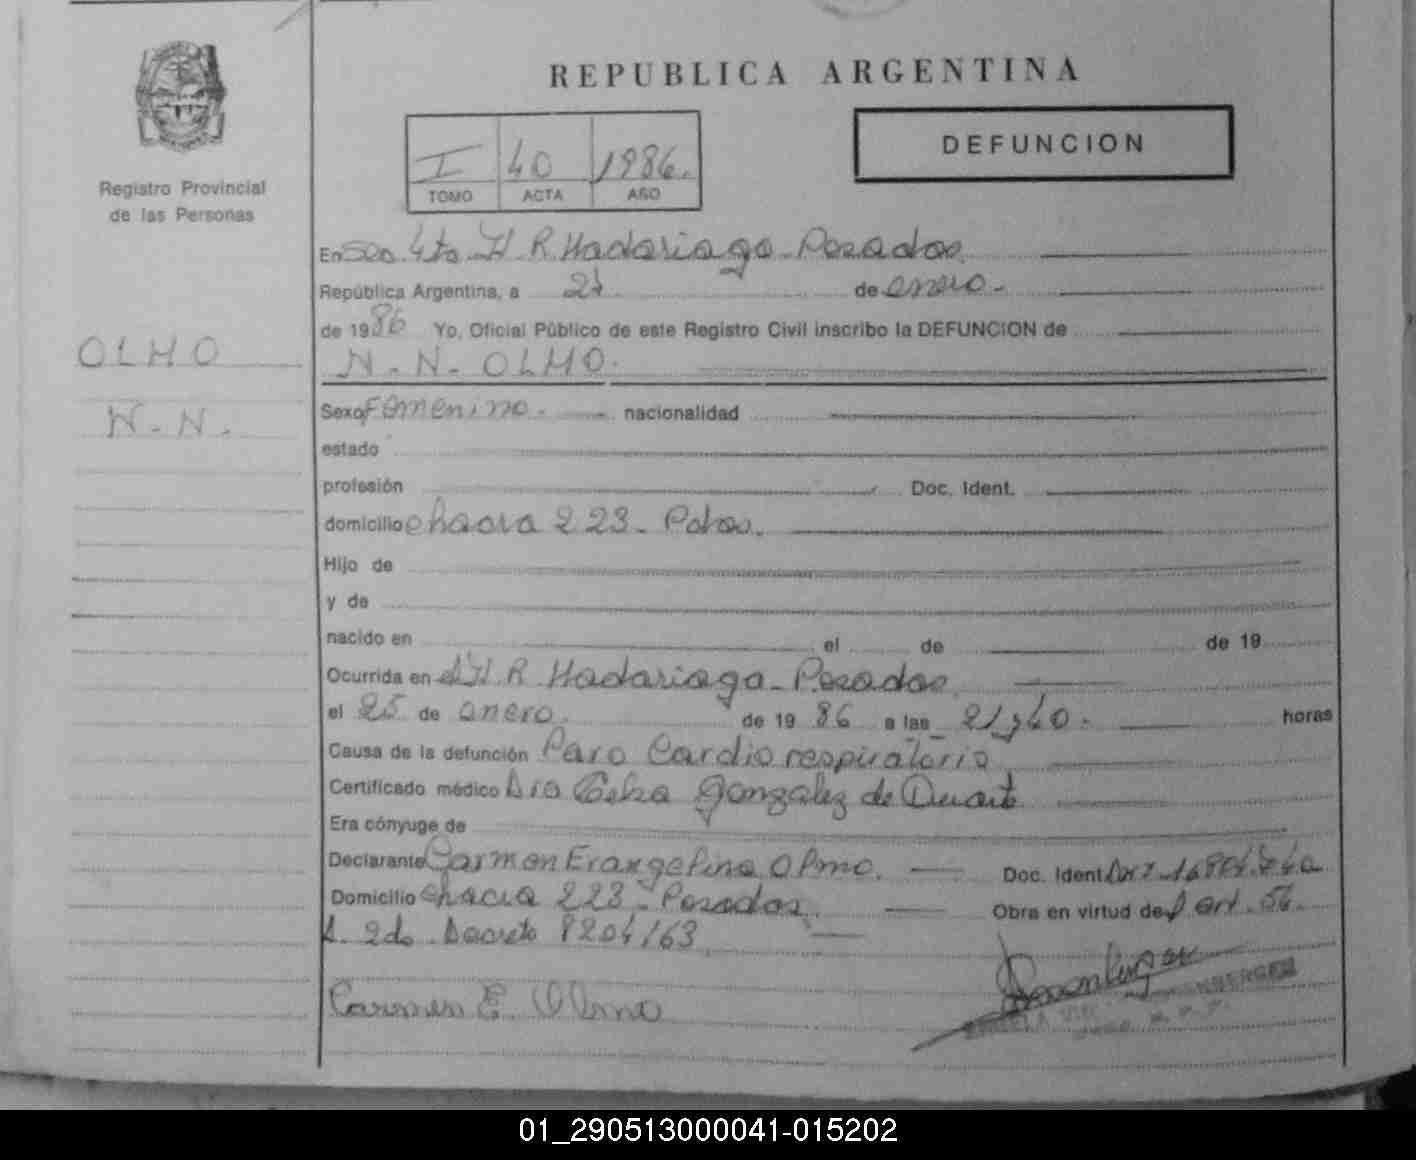 REPUBLICA ARGENTINA
DEFUNCION
I 40 1986.
TOMO ACTA AÑO
Registro Provincial
de las Personas
OLMO
N. N.
En Sec. 4ta H. R. Madariaga - Posadas
República Argentina, a 27 de enero.
de 1986 Yo, Oficial Público de este Registro Civil inscribo la DEFUNCION de
N. N. OLMO.
Sexo Femenino. nacionalidad
estado
profesión Doc. Ident.
domicilio chacra 223 - Pdas.
Hijo de
y de
nacido en el de de 19
Ocurrida en H. R. Madariaga - Posadas
el 25 de enero. de 1986 a las 21 y 40. horas
Causa de la defunción Paro Cardio respiratorio
Certificado médico Dra Gonzalez de Duarte
Era cónyuge de
Declarante Carmen Evangelina Olmo. Doc. Ident.
Domicilio chacra 223 - Posadas. Obra en virtud de art. 56.
I. 2do Decreto 8204/63
Carmen E. Olmo
01_290513000041-015202